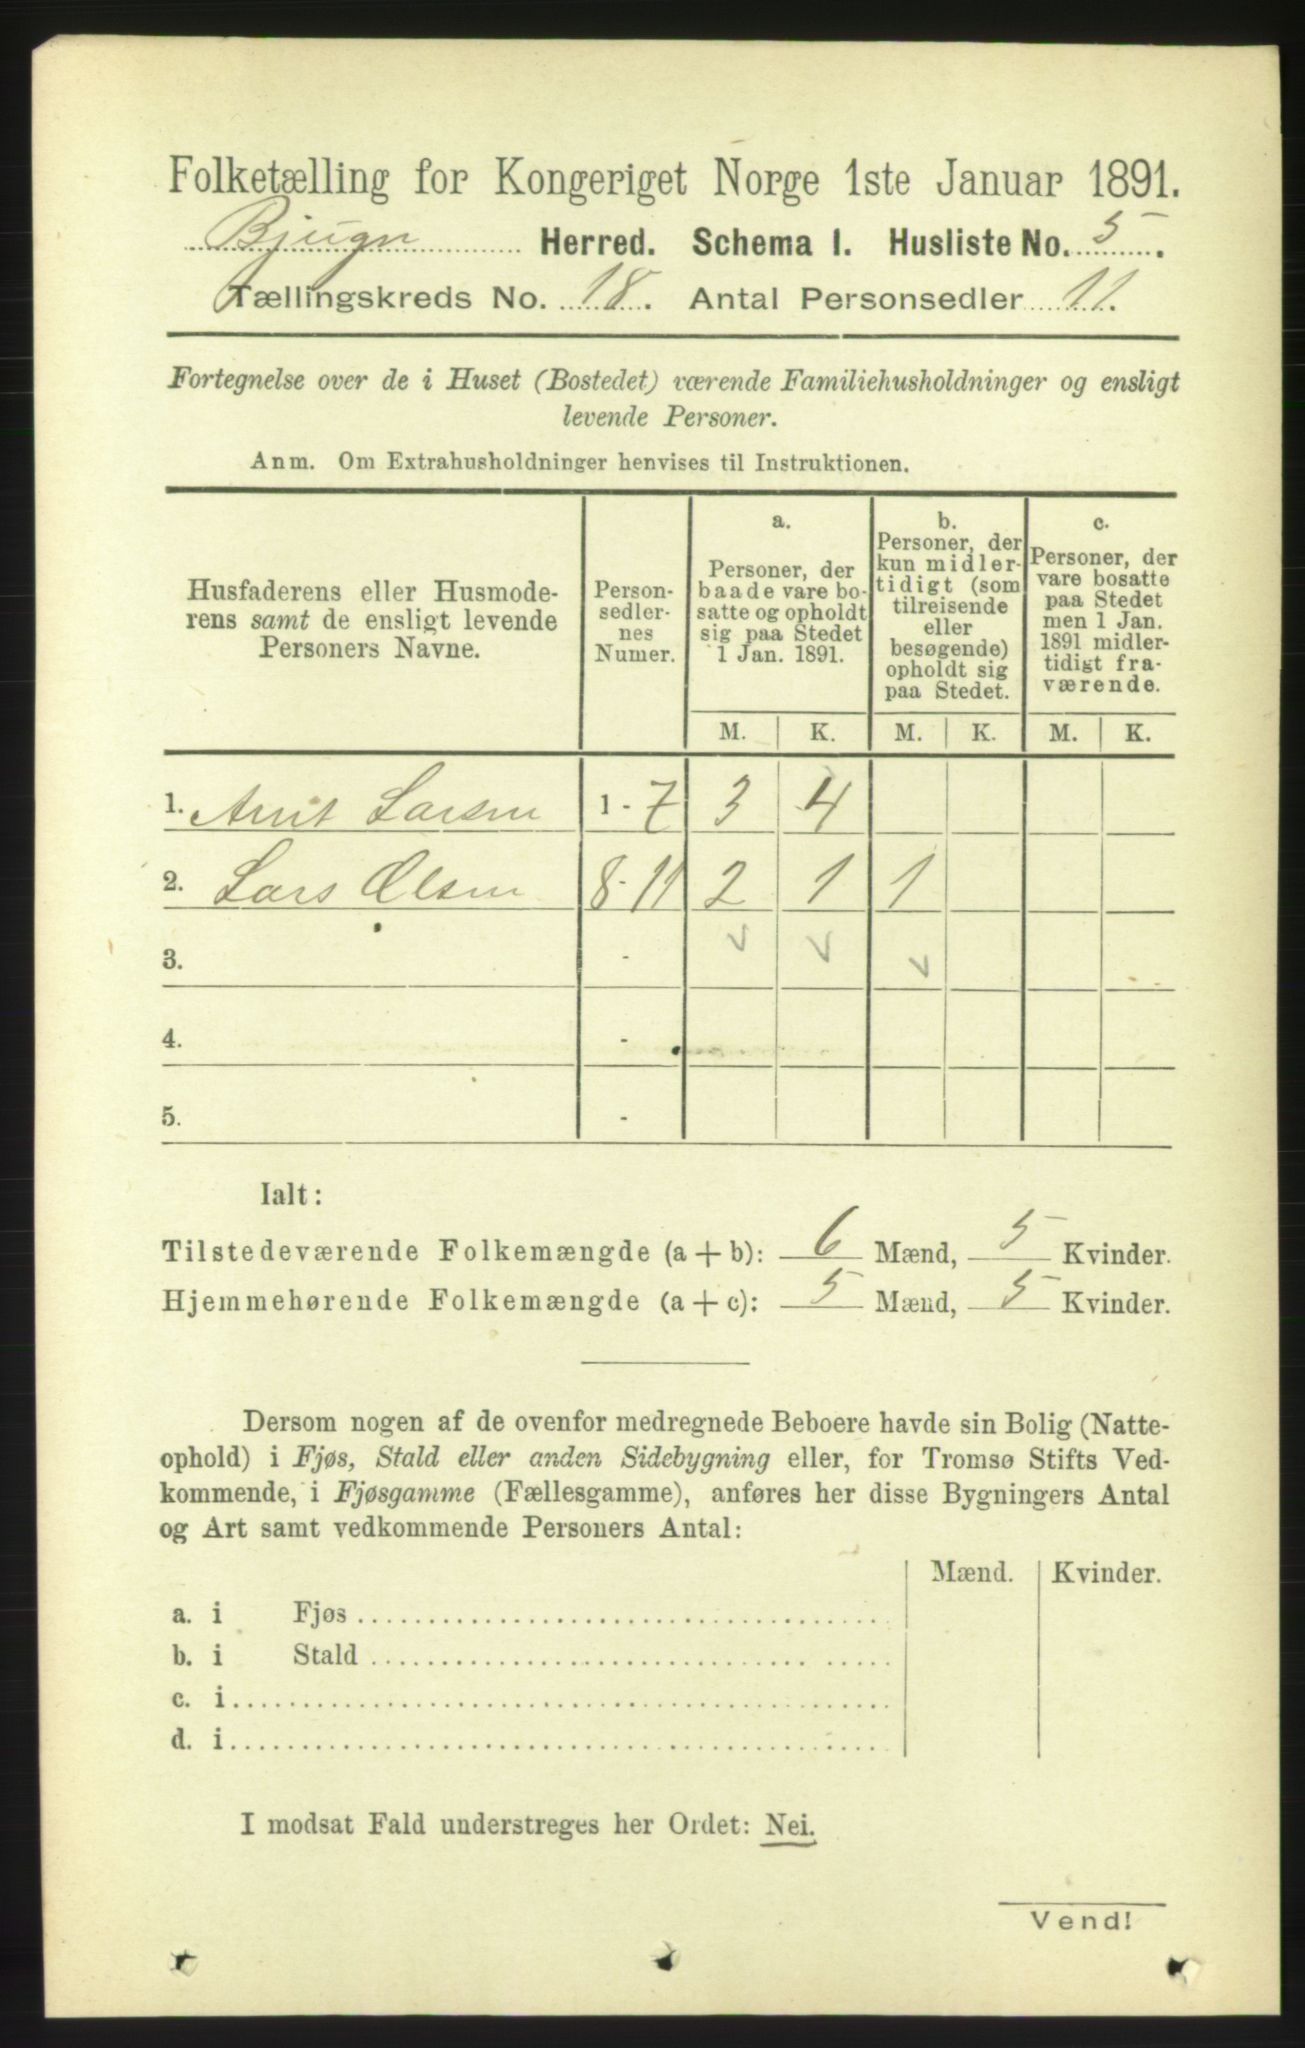 Folketælling for Kongeriget Norge 1ste Januar 1891.
Bjugn Herred. Schema 1. Husliste No. 5.
Tællingskreds No. 18. Antal Personsedler 11.
Fortegnelse over de i Huset (Bostedet) værende Familiehusholdninger og ensligt
levende Personer.
Anm. Om Extrahusholdninger henvises til Instruktionen.
Husfaderens eller Husmode-
rens samt de ensligt levende
Personers Navne.
Person-
sedler-
nes
Numer.
a.
Personer, der
baade vare bo-
satte og opholdt
sig paa Stedet
1 Jan. 1891.
b.
Personer, der
kun midler-
tidigt (som
tilreisende
eller
besøgende)
opholdt sig
paa Stedet.
c.
Personer, der
vare bosatte
paa Stedet
men 1 Jan.
1891 midler-
tidigt fra-
værende.
M. K. M. K. M. K.
1. Arnt Larsen 1 - 7 3 4
2. Lars Olsen 8 - 11 2 1 1
3. -
4. -
5. -
Ialt:
Tilstedeværende Folkemængde (a + b): 6 Mænd, 5 Kvinder.
Hjemmehørende Folkemængde (a + c): 5 Mænd, 5 Kvinder.
Dersom nogen af de ovenfor medregnede Beboere havde sin Bolig (Natte-
ophold) i Fjøs, Stald eller anden Sidebygning eller, for Tromsø Stifts Ved-
kommende, i Fjøsgamme (Fællesgamme), anføres her disse Bygningers Antal
og Art samt vedkommende Personers Antal:
Mænd. Kvinder.
a. i Fjøs
b. i Stald
c. i
d. i
I modsat Fald understreges her Ordet: Nei.
Vend!